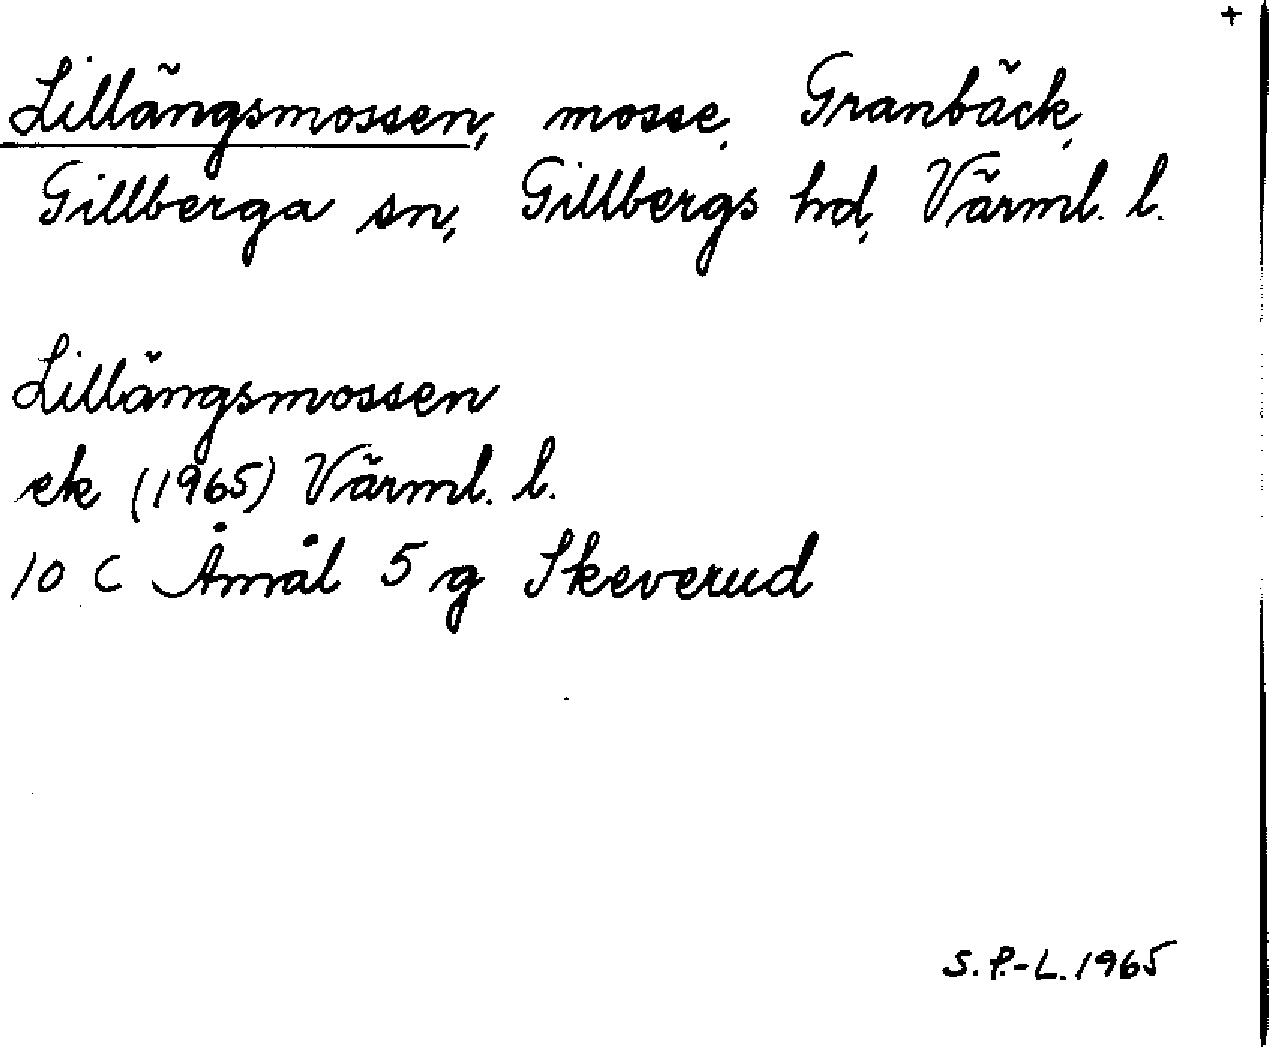 +
Lillängsmossen, mosse, Granbäck,
Gillberga sn, Gillbergs hd, Värml. l.
Lillängsmossen
ek (1965) Värml. l.
10 C Åmål 5 g Skeverud
S. P.-L. 1965